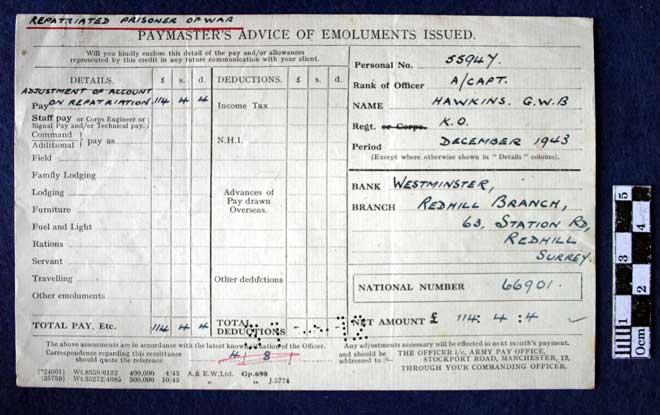 REPATRIATED PRISONER OF WAR
PAYMASTER'S ADVICE OF EMOLUMENTS ISSUED.
Will you kindly enclose this detail of the pay and/or allowances
represented by this credit in any future communication with your client.
DETAILS. £ s. d. DEDUCTIONS. £ s. d.
ADJUSTMENT OF ACCOUNT
Pay ON REPATRIATION. 114 4 4 Income Tax
Staff pay or Corps Engineer or
Signal Pay and/or Technical pay.
Command
Additional } pay as N.H.I.
Field
Family Lodging
Lodging Advances of
Furniture Pay drawn
Fuel and Light Overseas.
Rations
Servant
Travelling Other deductions
Other emoluments
TOTAL PAY, Etc. 114 4 4 TOTAL
DEDUCTIONS
Personal No. 55947.
Rank of Officer A/CAPT.
NAME HAWKINS. G.W.B
Regt. or Corps. K.O.
Period DECEMBER 1943
(Except where otherwise shown in "Details" column).
BANK WESTMINSTER,
BRANCH REDHILL BRANCH,
63, STATION RD,
REDHILL
SURREY.
NATIONAL NUMBER 66901.
NET AMOUNT £ 114 : 4 : 4
The above assessments are in accordance with the latest known situation of the Officer.
Correspondence regarding this remittance
should quote the reference 4 8
Any adjustments necessary will be effected in next month's payment.
and should be
addressed to:—
THE OFFICER i/c, ARMY PAY OFFICE,
STOCKPORT ROAD, MANCHESTER, 13,
THROUGH YOUR COMMANDING OFFICER.
(*24001) Wt.8358/6132 400,000 4/43 A. & E.W.Ltd. Gp.698
(25759) Wt.35272/4085 500,000 10/43 " " J.5774
5
4
3
2
1
0cm